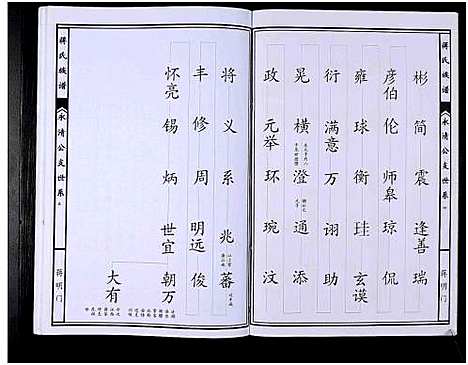 蒋氏族谱
永清公支世系
蒋明门
彬 简 震 逢善 瑞
彦伯 伦 师皋 琼 侃
雍 球 衡 珪 玄谟
衍 满意 万 诩 助
晃 横 澄 通 添
政 元举 环 琬 汶
将 义 系 兆 蕃
丰 修 周 明远 俊
怀亮 锡 炳 世宜 朝万
大有
蒋氏族谱
永清公支世系
蒋明门